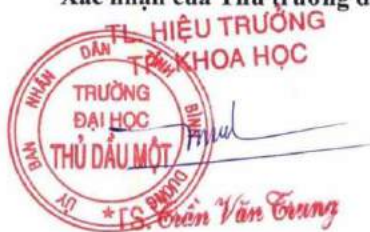 Xác nhận của Thủ trưởng đ
TL. HIỆU TRƯỞNG
TP. KHOA HỌC
ỦY BAN NHÂN DÂN TỈNH BÌNH DƯƠNG
TRƯỜNG
ĐẠI HỌC
THỦ DẦU MỘT
TS. Trần Văn Trung